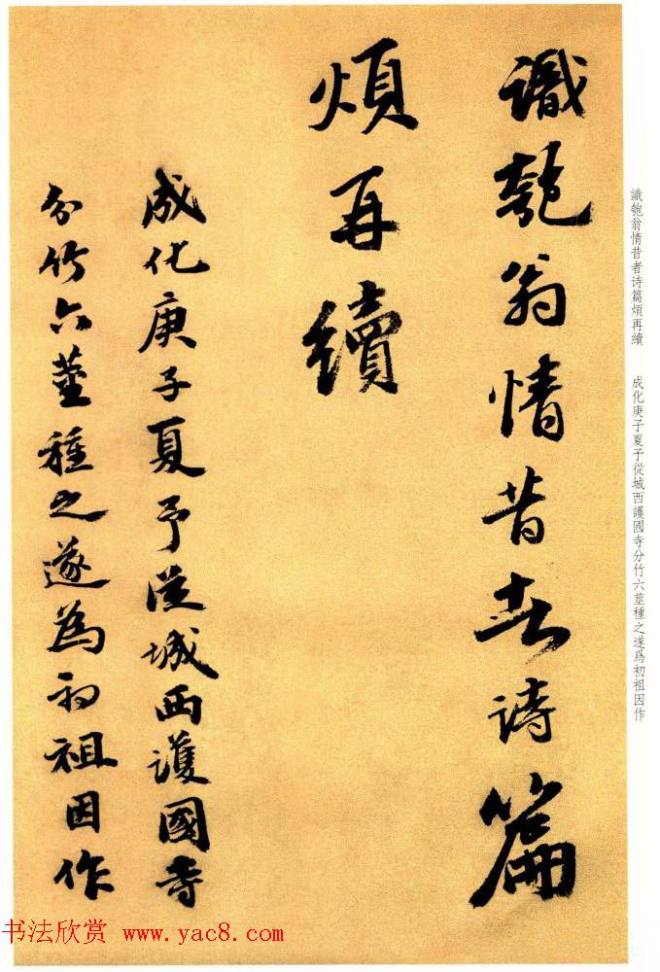 識匏翁情昔者诗篇
煩再續
成化庚子夏予從城西護國寺
分竹六莖種之遂為初祖因作
識匏翁情昔者诗篇煩再續 成化庚子夏予從城西護國寺分竹六莖種之遂爲初祖因作
书法欣赏 www.yac8.com